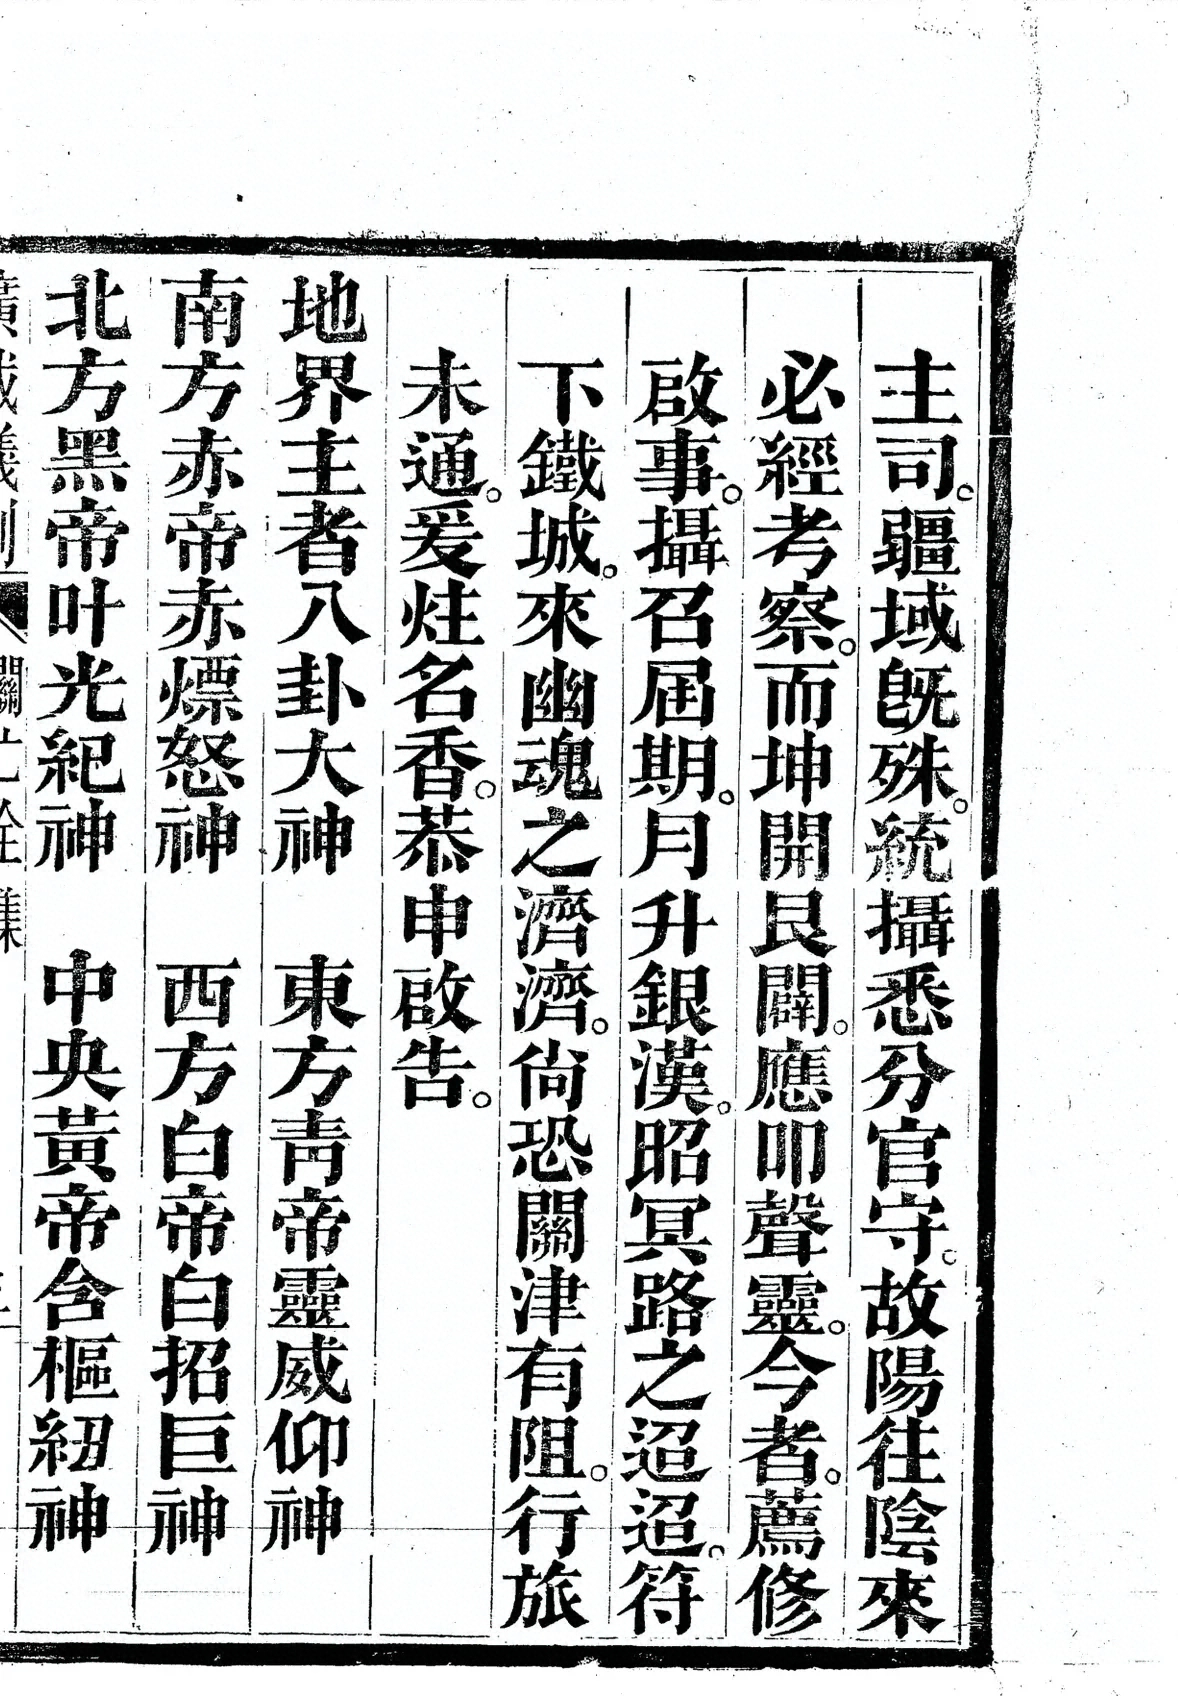 主司。疆域旣殊。統攝悉分官守。故陽往陰來
必經考察。而坤開艮闢。應叩聲靈。今者。薦修
啟事。攝召屆期。月升銀漢。昭冥路之迢迢。符
下鐵城。來幽魂之濟濟。尙恐關津有阻。行旅
未通。爰炷名香。恭申啟告。
地界主者八卦大神　東方青帝靈威仰神
南方赤帝赤熛怒神　西方白帝白招巨神
北方黑帝叶光紀神　中央黃帝含樞紐神
廣成儀制　關告 集